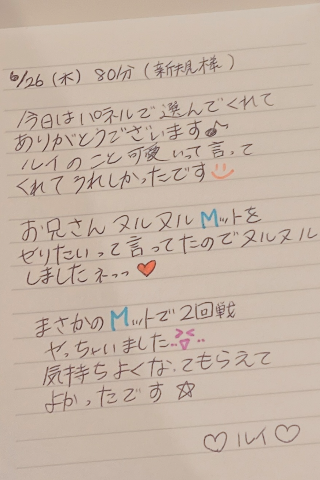 6/26(木) 80分(新規様)
今日はパネルで選んでくれて
ありがとうございます♪
ルイのこと可愛いって言って
くれてうれしかったです
お兄さんヌルヌルMットを
ゼリたいって言ってたのでヌルヌル
しましたネっっ♥
まさかのMットで2回戦
ヤっちゃいました
気持ちよくなってもらえて
よかったです☆
♡ルイ♡